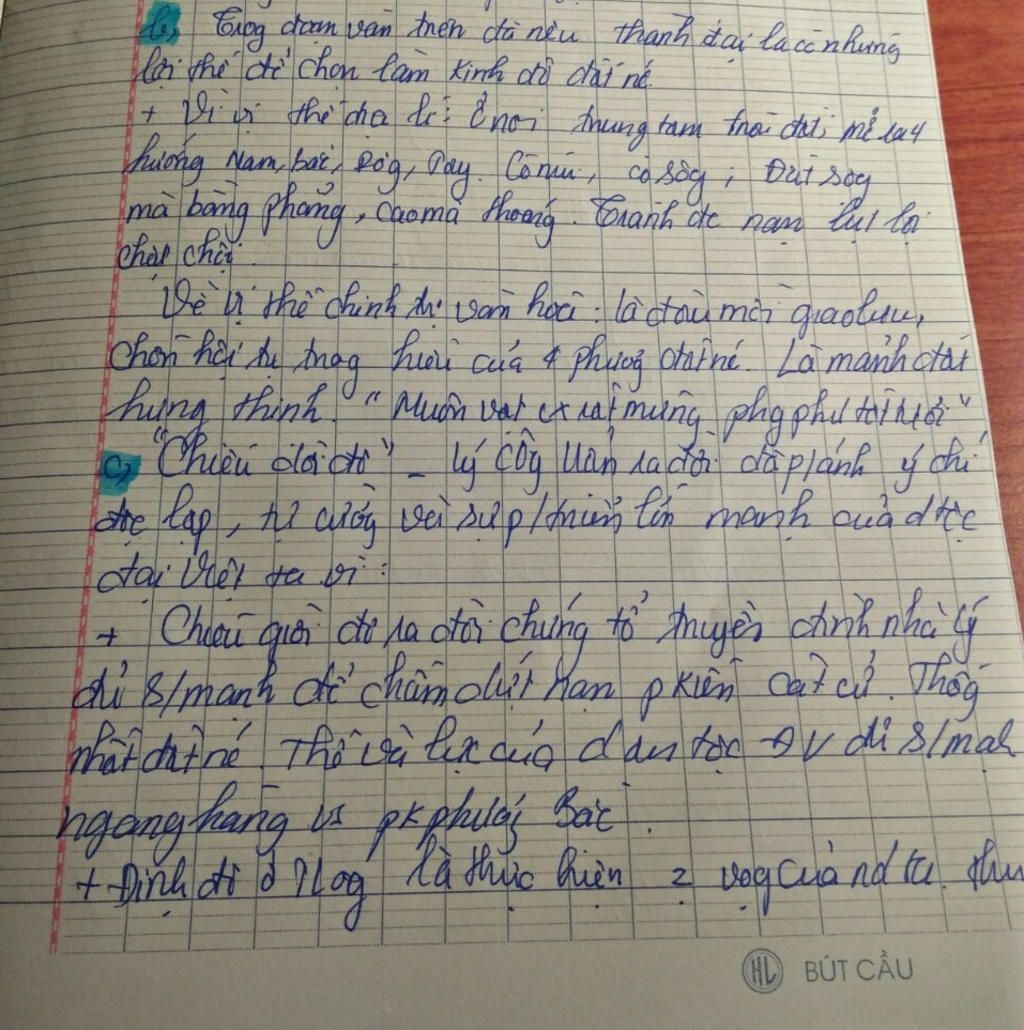 b, Trog đoạn văn trên đã nêu thành đại la có những
lợi thế để chọn làm kinh đô đất nc.
+ Về vị thế địa lí: Ở nơi trung tâm trời đất; mở ra 4
hướng Nam, bắc, Đôg, Tây. Có núi, có sôg; Đất rộg
mà bằng phẳng, cao mà thoáng. Tránh đc nạn lụt lội
chật chội.
Về vị thế chính trị văn hoá: là đầu mối giao lưu,
chốn hội tụ trọg của 4 phươg đất nc. Là mảnh đất
hưng thịnh. "Muôn vật rất mực phg phú tốt tươi"
c, "Chiếu dời đô" - Lý Côg Uẩn ra đời đã p/ánh ý chí
độc lập, tự cườg với sự p/triển lớn mạnh của dtộc
đại Việt ta vì:
+ Chiếu giời đô ra đời chứng tỏ triều đình nhà Lý
đủ s/mạnh để chấm dứt nạn p kiến cát cứ. Thốg
nhất đất nc. Thế và lực của dân tộc ĐV đủ s/mạh
ngang hàng vs pk phươg Bắc.
+ Định đô ở TLog là thực hiện vọg của nd ta. thu
HL BÚT CẦU